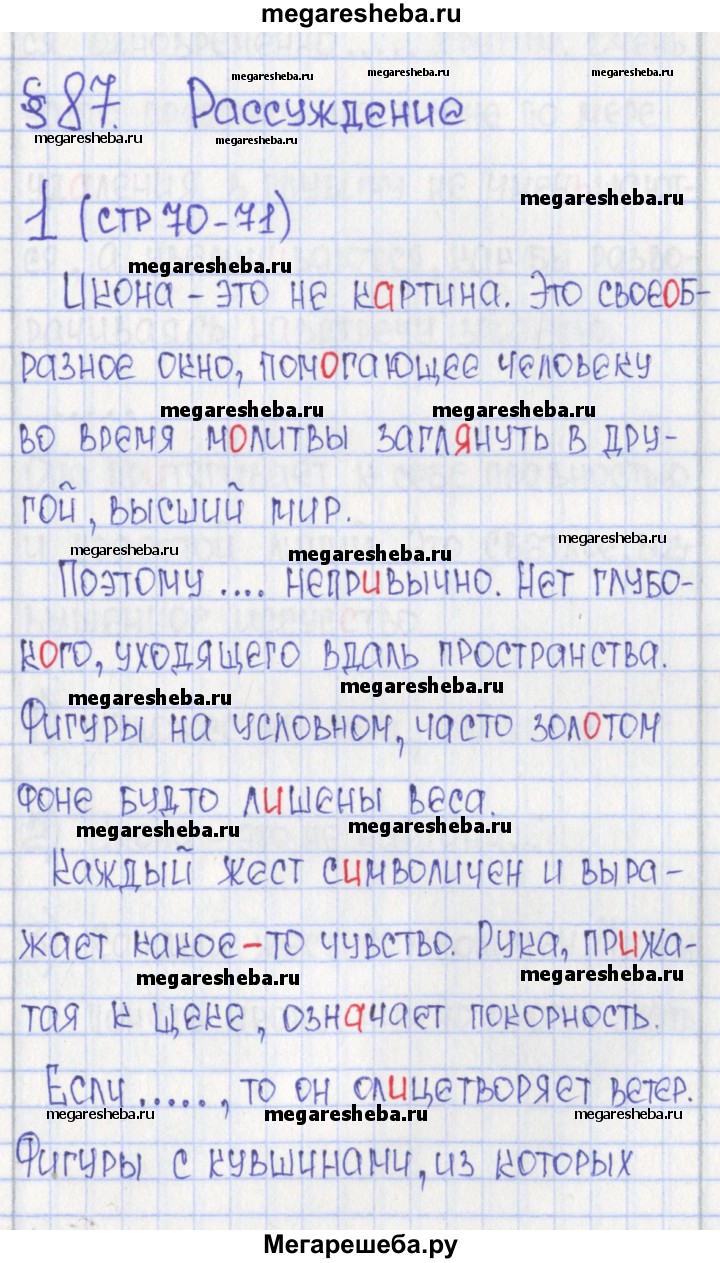 megaresheba.ru
§ 87. Рассуждение
megaresheba.ru
megaresheba.ru
megaresheba.ru
megaresheba.ru
megaresheba.ru
1 (стр 70-71)
megaresheba.ru
megaresheba.ru
Икона - это не картина. Это своеоб-
разное окно, помогающее человеку
megaresheba.ru
megaresheba.ru
во время молитвы заглянуть в дру-
гой, высший мир.
megaresheba.ru
megaresheba.ru
megaresheba.ru
Поэтому .... непривычно. Нет глубо-
кого, уходящего вдаль пространства.
megaresheba.ru
megaresheba.ru
Фигуры на условном, часто золотом
фоне будто лишены веса.
megaresheba.ru
megaresheba.ru
Каждый жест символичен и выра-
жает какое-то чувство. Рука, прижа-
megaresheba.ru
megaresheba.ru
тая к щеке, означает покорность.
Если ......, то он олицетворяет ветер.
megaresheba.ru
megaresheba.ru
megaresheba.ru
Фигуры с кувшинами, из которых
Мегарешеба.ру